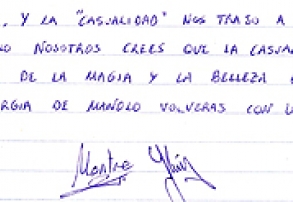 , Y LA "CASUALIDAD" NOS TRAJO A
NOSOTROS CREES QUE LA CASUAL
DE LA MAGIA Y LA BELLEZA
RGIA DE MANOLO VOLVERAS CON U
Montse